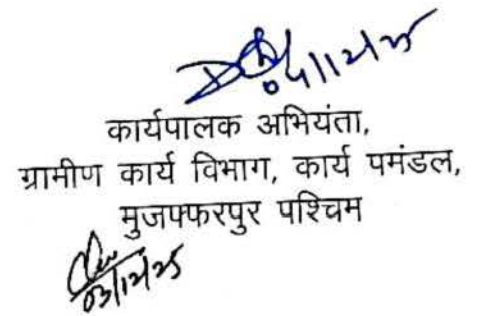 04/12/25
कार्यपालक अभियंता,
ग्रामीण कार्य विभाग, कार्य पमंडल,
मुजफ्फरपुर पश्चिम
03/12/25